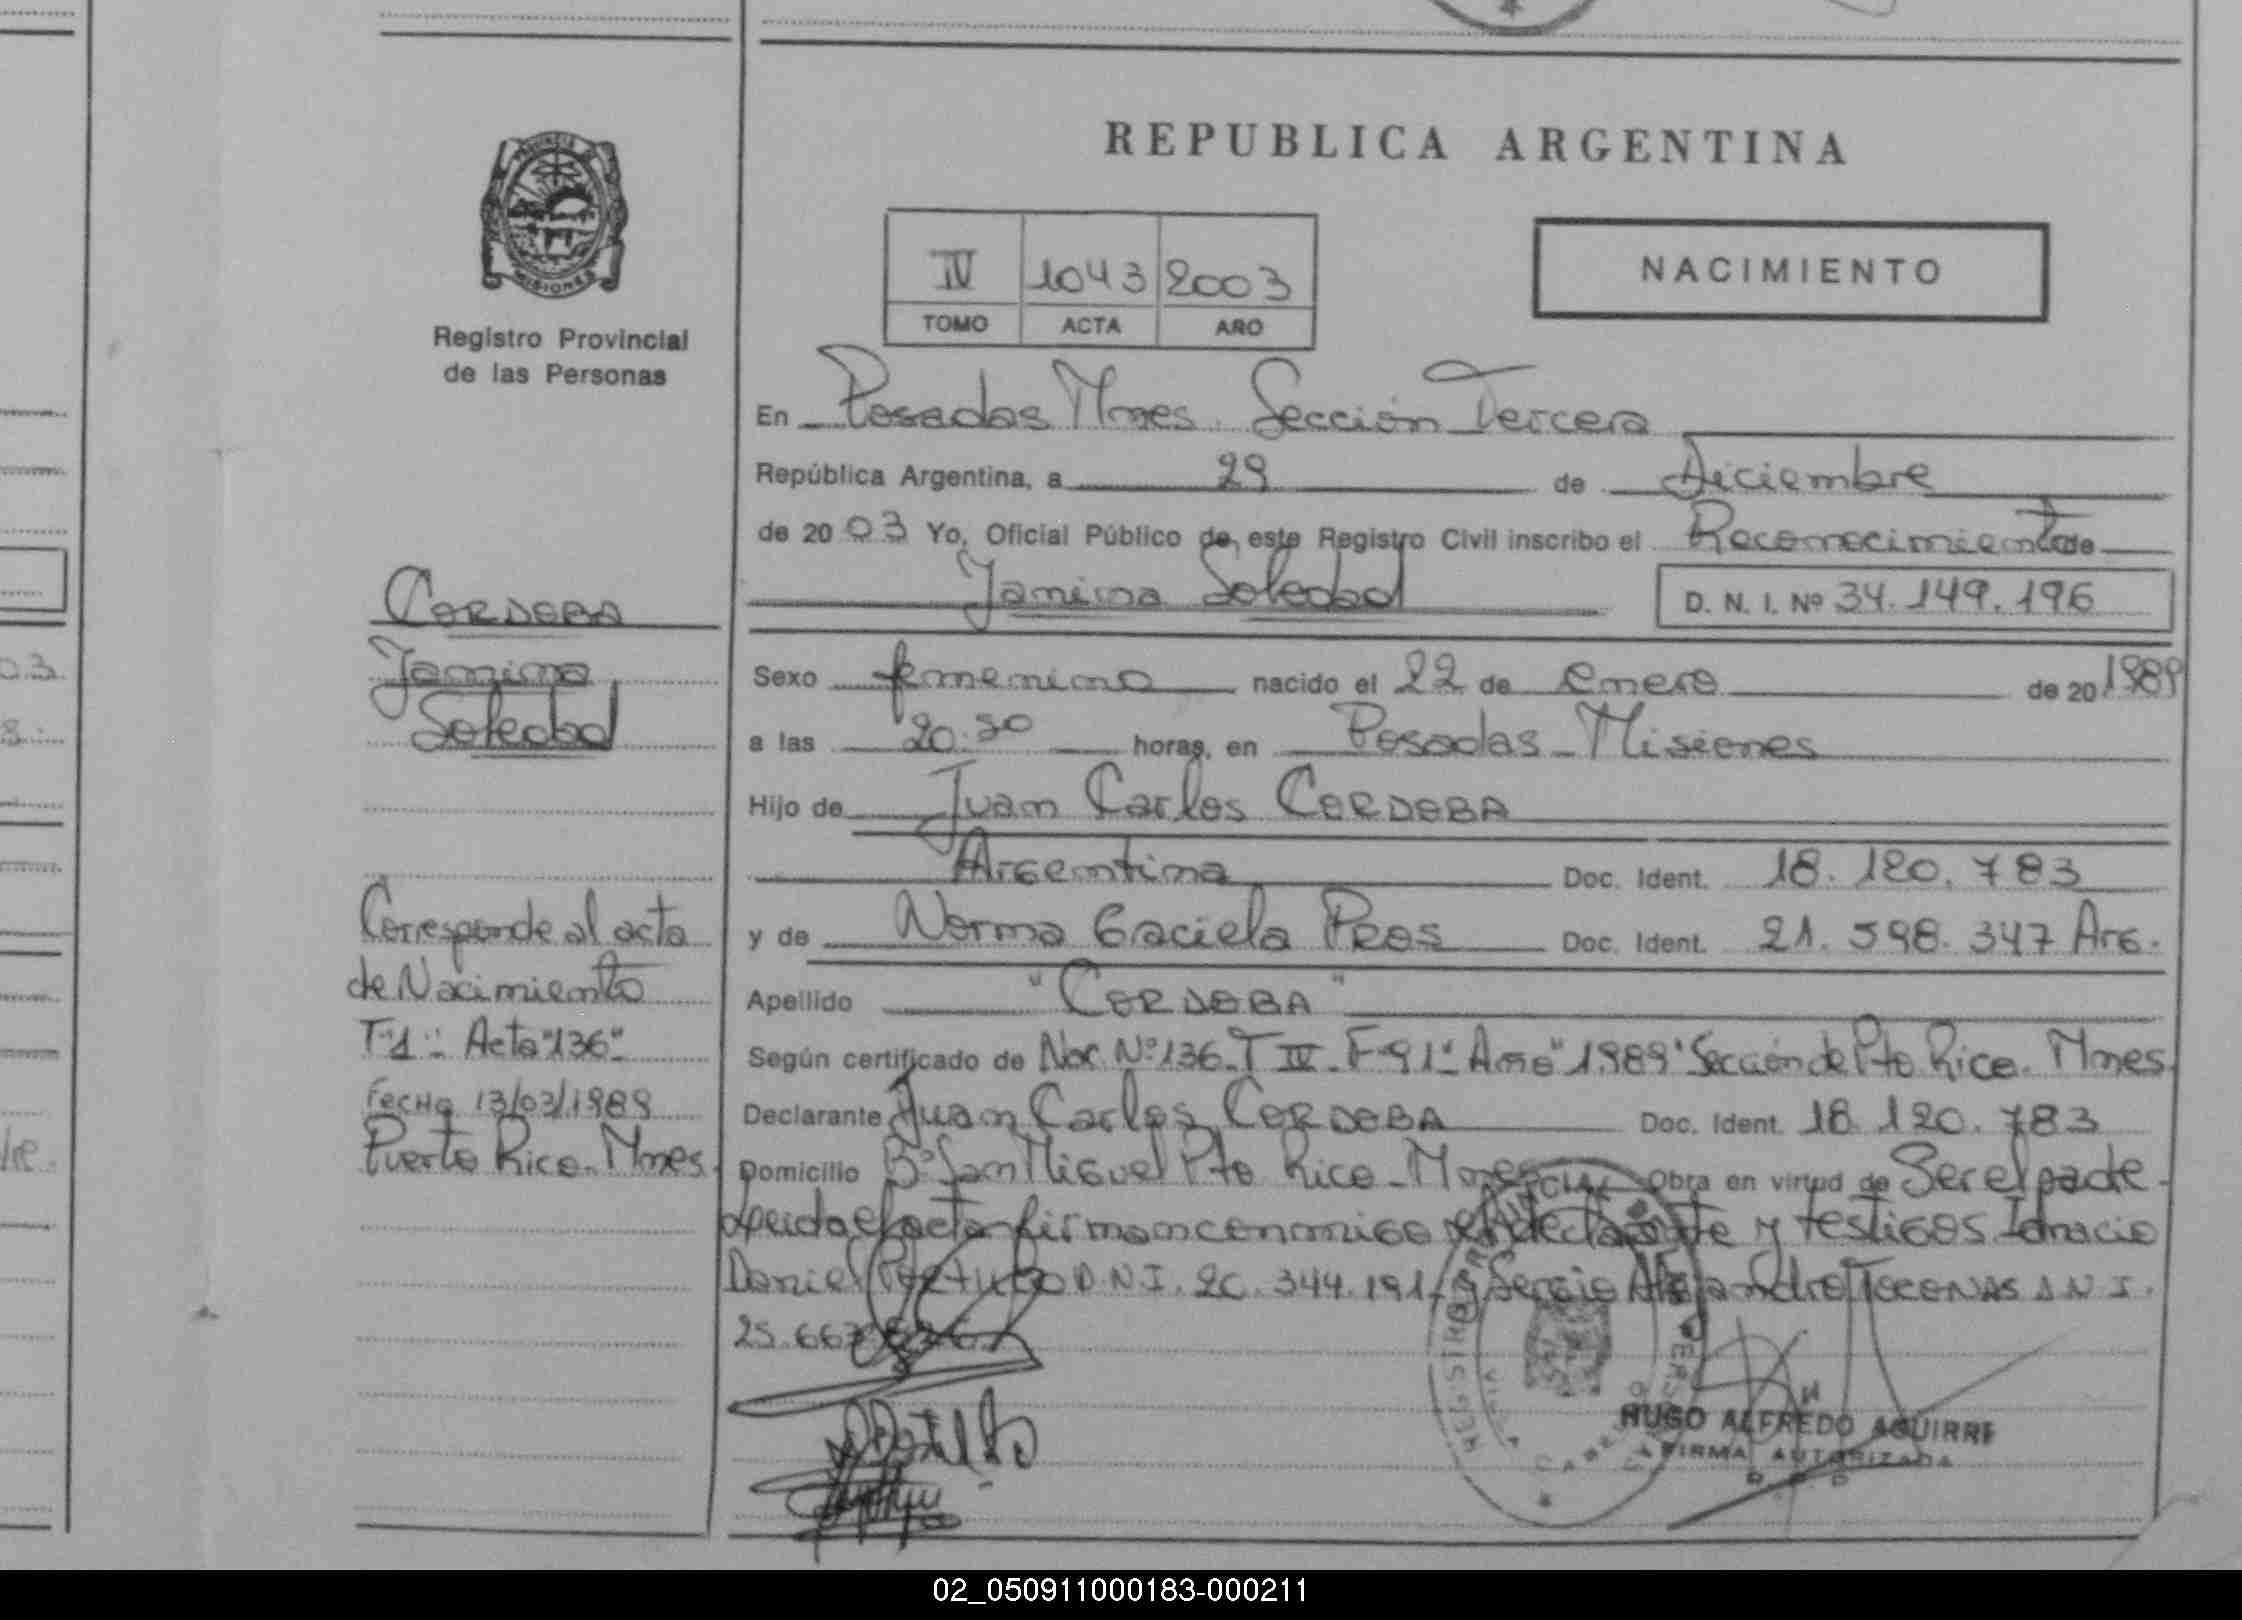 PROVINCIA DE
MISIONES
Registro Provincial
de las Personas
CORDOBA
Jamina
Soledad
Corresponde al acta
de Nacimiento
T"1" Acta"136"
Fecha 13/03/1989
Puerto Rico. Mnes.
REPUBLICA ARGENTINA
IV 1043 2003
TOMO ACTA AÑO
NACIMIENTO
En Posadas Mnes. Sección Tercera
República Argentina, a 29 de Diciembre
de 2003 Yo, Oficial Público de este Registro Civil inscribo el Reconocimiento de
Jamina Soledad D. N. I. Nº 34.149.196
Sexo femenino nacido el 22 de Enero de 20 1989
a las 20:30 horas, en Posadas - Misiones
Hijo de Juan Carlos CORDOBA
Argentina Doc. Ident. 18.120.783
y de Norma Graciela PROS Doc. Ident. 21.598.347 Arg.
Apellido "CORDOBA"
Según certificado de Nac. Nº 136 T IV - F 91" Año "1989" Sección de Pto Rico. Mnes
Declarante Juan Carlos CORDOBA Doc. Ident. 18.120.783
Domicilio Bº San Miguel Pto Rico - Mnes Obra en virtud de Ser el padre.
Leida el acta firman conmigo el declarante y testigos Ignacio
Daniel D.N.I. 20.344.191 y Sergio Alejandro D.N.I.
HUGO ALFREDO AGUIRRE
FIRMA AUTORIZADA
02_050911000183-000211